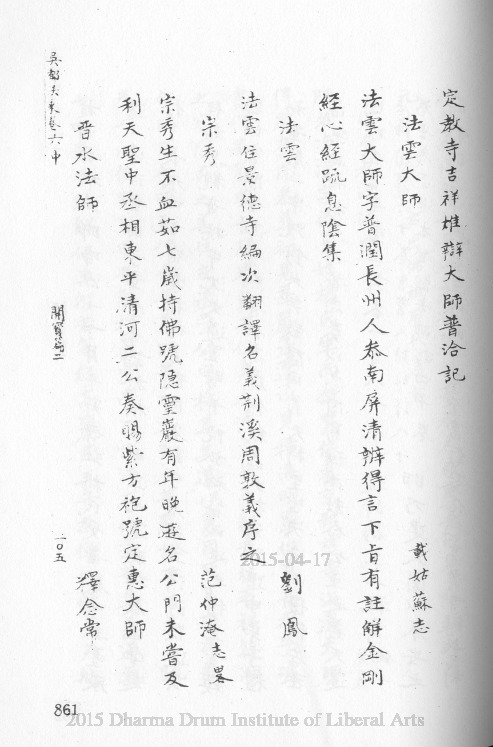 定教寺吉祥雄辯大師普洽記
法雲大師
載姑蘇志
法雲大師字普潤長州人恭南屏清辨得言下旨有註解金剛
經心經疏息陰集
法雲
劉鳳
法雲住景德寺編次翻譯名義荆溪周敦義序之
宗秀
范仲淹志畧
宗秀生不血茹七歲持佛號隠靈巖有年晚遊名公門未嘗及
利天聖中丞相東平清河二公奏賜紫方袍號定惠大師
晉水法師
釋念常
吳都法乘卷六中
開寳篇二
一〇五
861
2015-04-17
2015 Dharma Drum Institute of Liberal Arts